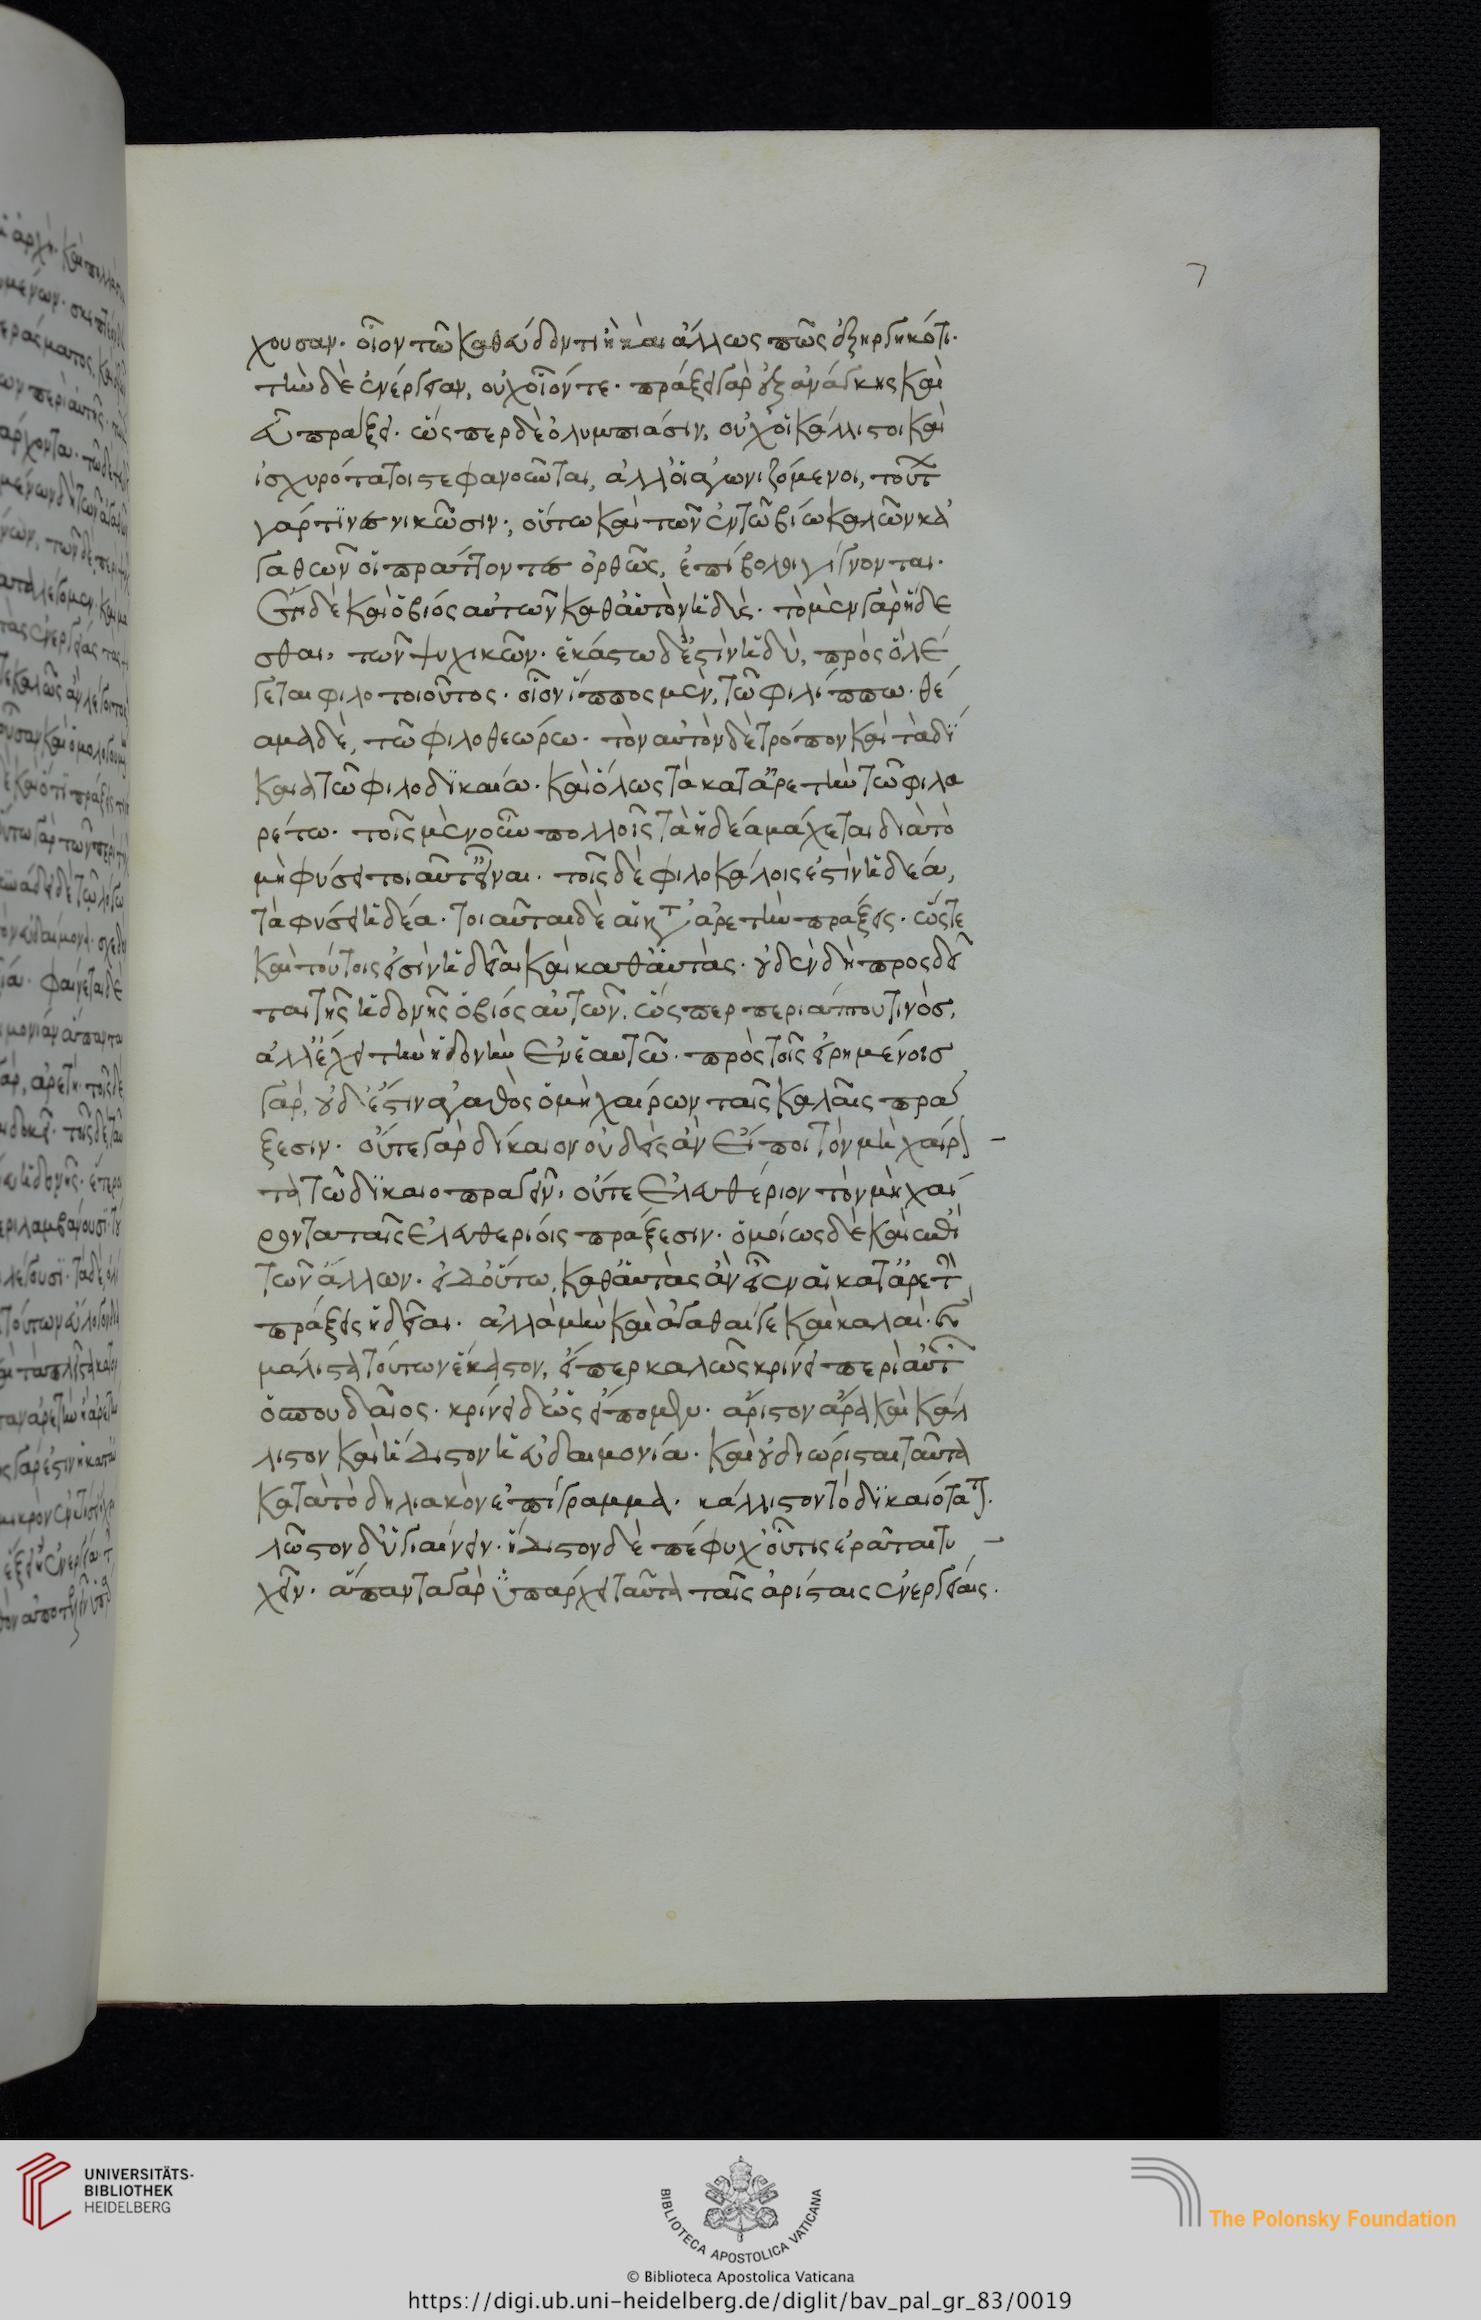 7
χουσαν· οἷον τῶ καθεύδοντι ἢ καὶ ἄλλως πῶς ἐξηργηκότι·
τὴν δὲ ἐνέργειαν, οὐχ οἷόν τε· πράξει γὰρ ἐξ ἀνάγκης καὶ
εὖ πράξει· ὥσπερ δὲ ὀλυμπιάσιν, οὐχ οἱ κάλλιστοι καὶ
ἰσχυρότατοι στεφανοῦνται, ἀλλ' οἱ ἀγωνιζόμενοι, τούτων
γάρ τινες νικῶσιν·, οὕτω καὶ τῶν ἐν τῶ βίω καλῶν κἀ
γαθῶν οἱ πράττοντες ὀρθῶς, ἐπήβολοι γίγνονται·
ἔστι δὲ καὶ ὁ βίος αὐτῶν καθ' αὑτὸν ἡδύς· τὸ μὲν γὰρ ἥδε
σθαι, τῶν ψυχικῶν· ἑκάστω δ' ἐστὶν ἡδὺ, πρὸς ὃ λέ
γεται φιλοτοιοῦτος· οἷον ἵππος μὲν, τῶ φιλίππω· θέ
αμα δὲ, τῶ φιλοθεώρω· τὸν αὐτὸν δὲ τρόπον καὶ τὰ δί
καια τῶ φιλοδικαίω· καὶ ὅλως τὰ κατ' ἀρετὴν τῶ φιλα
ρέτω· τοῖς μὲν οὖν πολλοῖς τὰ ἡδέα μάχεται διὰ τὸ
μὴ φύσει τοιαῦτ' εἶναι· τοῖς δὲ φιλοκάλοις ἐστὶν ἡδέα,
τὰ φύσει ἡδέα· τοιαῦται δὲ αἱ κατ' ἀρετὴν πράξεις· ὥστε
καὶ τούτοις εἰσὶν ἡδεῖαι καὶ καθ' αὑτάς· οὐδὲν δὴ προσδεῖ
ται τῆς ἡδονῆς ὁ βίος αὐτῶν, ὥσπερ περιάπτου τινὸς,
ἀλλ' ἔχει τὴν ἡδονὴν ἐν ἑαυτῶ· πρὸς τοῖς εἰρημένοις
γὰρ, οὐδ' ἔστιν ἀγαθὸς ὁ μὴ χαίρων ταῖς καλαῖς πρά
ξεσιν· οὔτε γὰρ δίκαιον οὐδεὶς ἂν εἴποι τὸν μὴ χαίρον
τα τῶ δικαιοπραγεῖν, οὔτε ἐλευθέριον τὸν μὴ χαί
ροντα ταῖς ἐλευθερίοις πράξεσιν· ὁμοίως δὲ καὶ ἐπὶ
τῶν ἄλλων· εἰ δ' οὕτω, καθ' αὑτὰς ἂν εἶεν αἱ κατ' ἀρετὴν
πράξεις ἡδεῖαι· ἀλλὰ μὴν καὶ ἀγαθαί γε καὶ καλαί· καὶ
μάλιστα τούτων ἕκαστον, εἴπερ καλῶς κρίνει περὶ αὐτῶν
ὁ σπουδαῖος· κρίνει δ' ὡς εἴπομεν· ἄριστον ἄρα καὶ κάλ
λιστον καὶ ἥδιστον ἡ εὐδαιμονία· καὶ οὐ διώρισται ταῦτα
κατὰ τὸ δηλιακὸν ἐπίγραμμα· κάλλιστον τὸ δικαιότατον.
λῶστον δ' ὑγιαίνειν· ἥδιστον δὲ πέφυχ' οὗ τις ἐρᾶται τυ
χεῖν· ἅπαντα γὰρ ὑπάρχει ταῦτα ταῖς ἀρίσταις ἐνεργείαις.
UNIVERSITÄTS-
BIBLIOTHEK
HEIDELBERG
BIBLIOTECA APOSTOLICA VATICANA
© Biblioteca Apostolica Vaticana
The Polonsky Foundation
https://digi.ub.uni-heidelberg.de/diglit/bav_pal_gr_83/0019